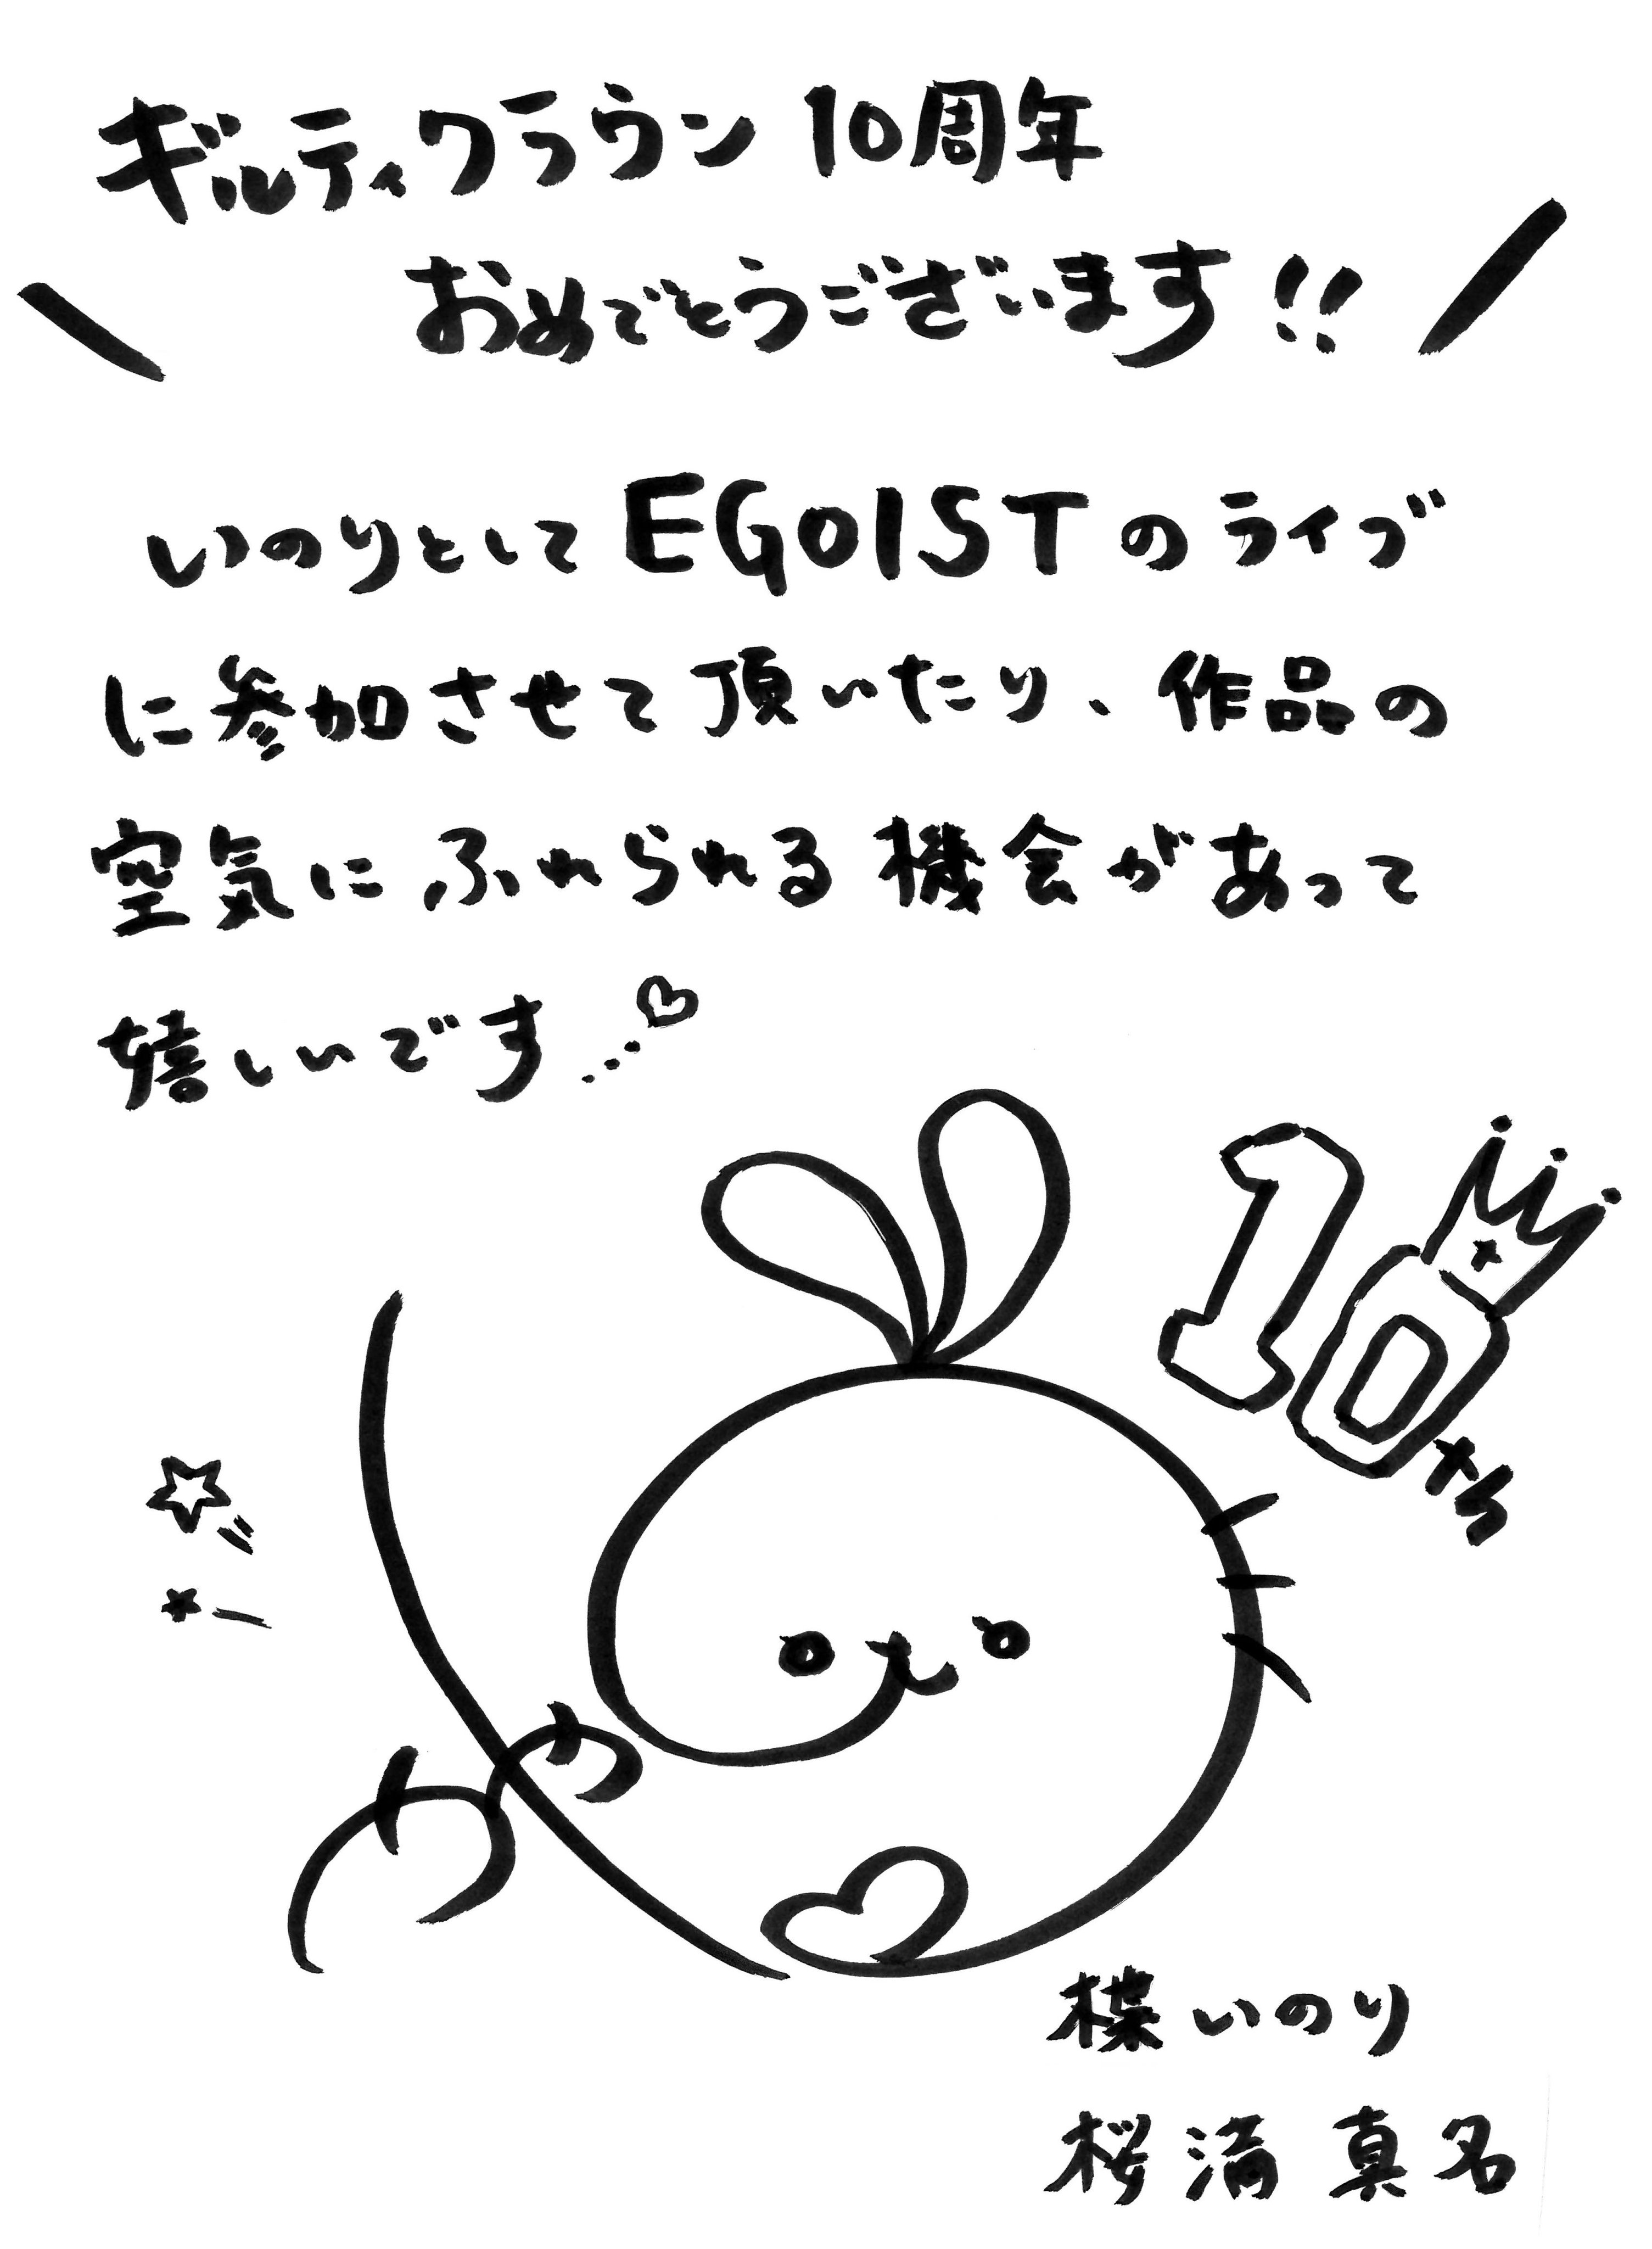 ギルティクラウン 10周年
おめでとうございます!!
いのりとして EGOIST のライブ
に参加させて頂いたり、作品の
空気に ふれられる 機会が あって
嬉しいです…♡
10
かや
楪 いのり
桜満 真名